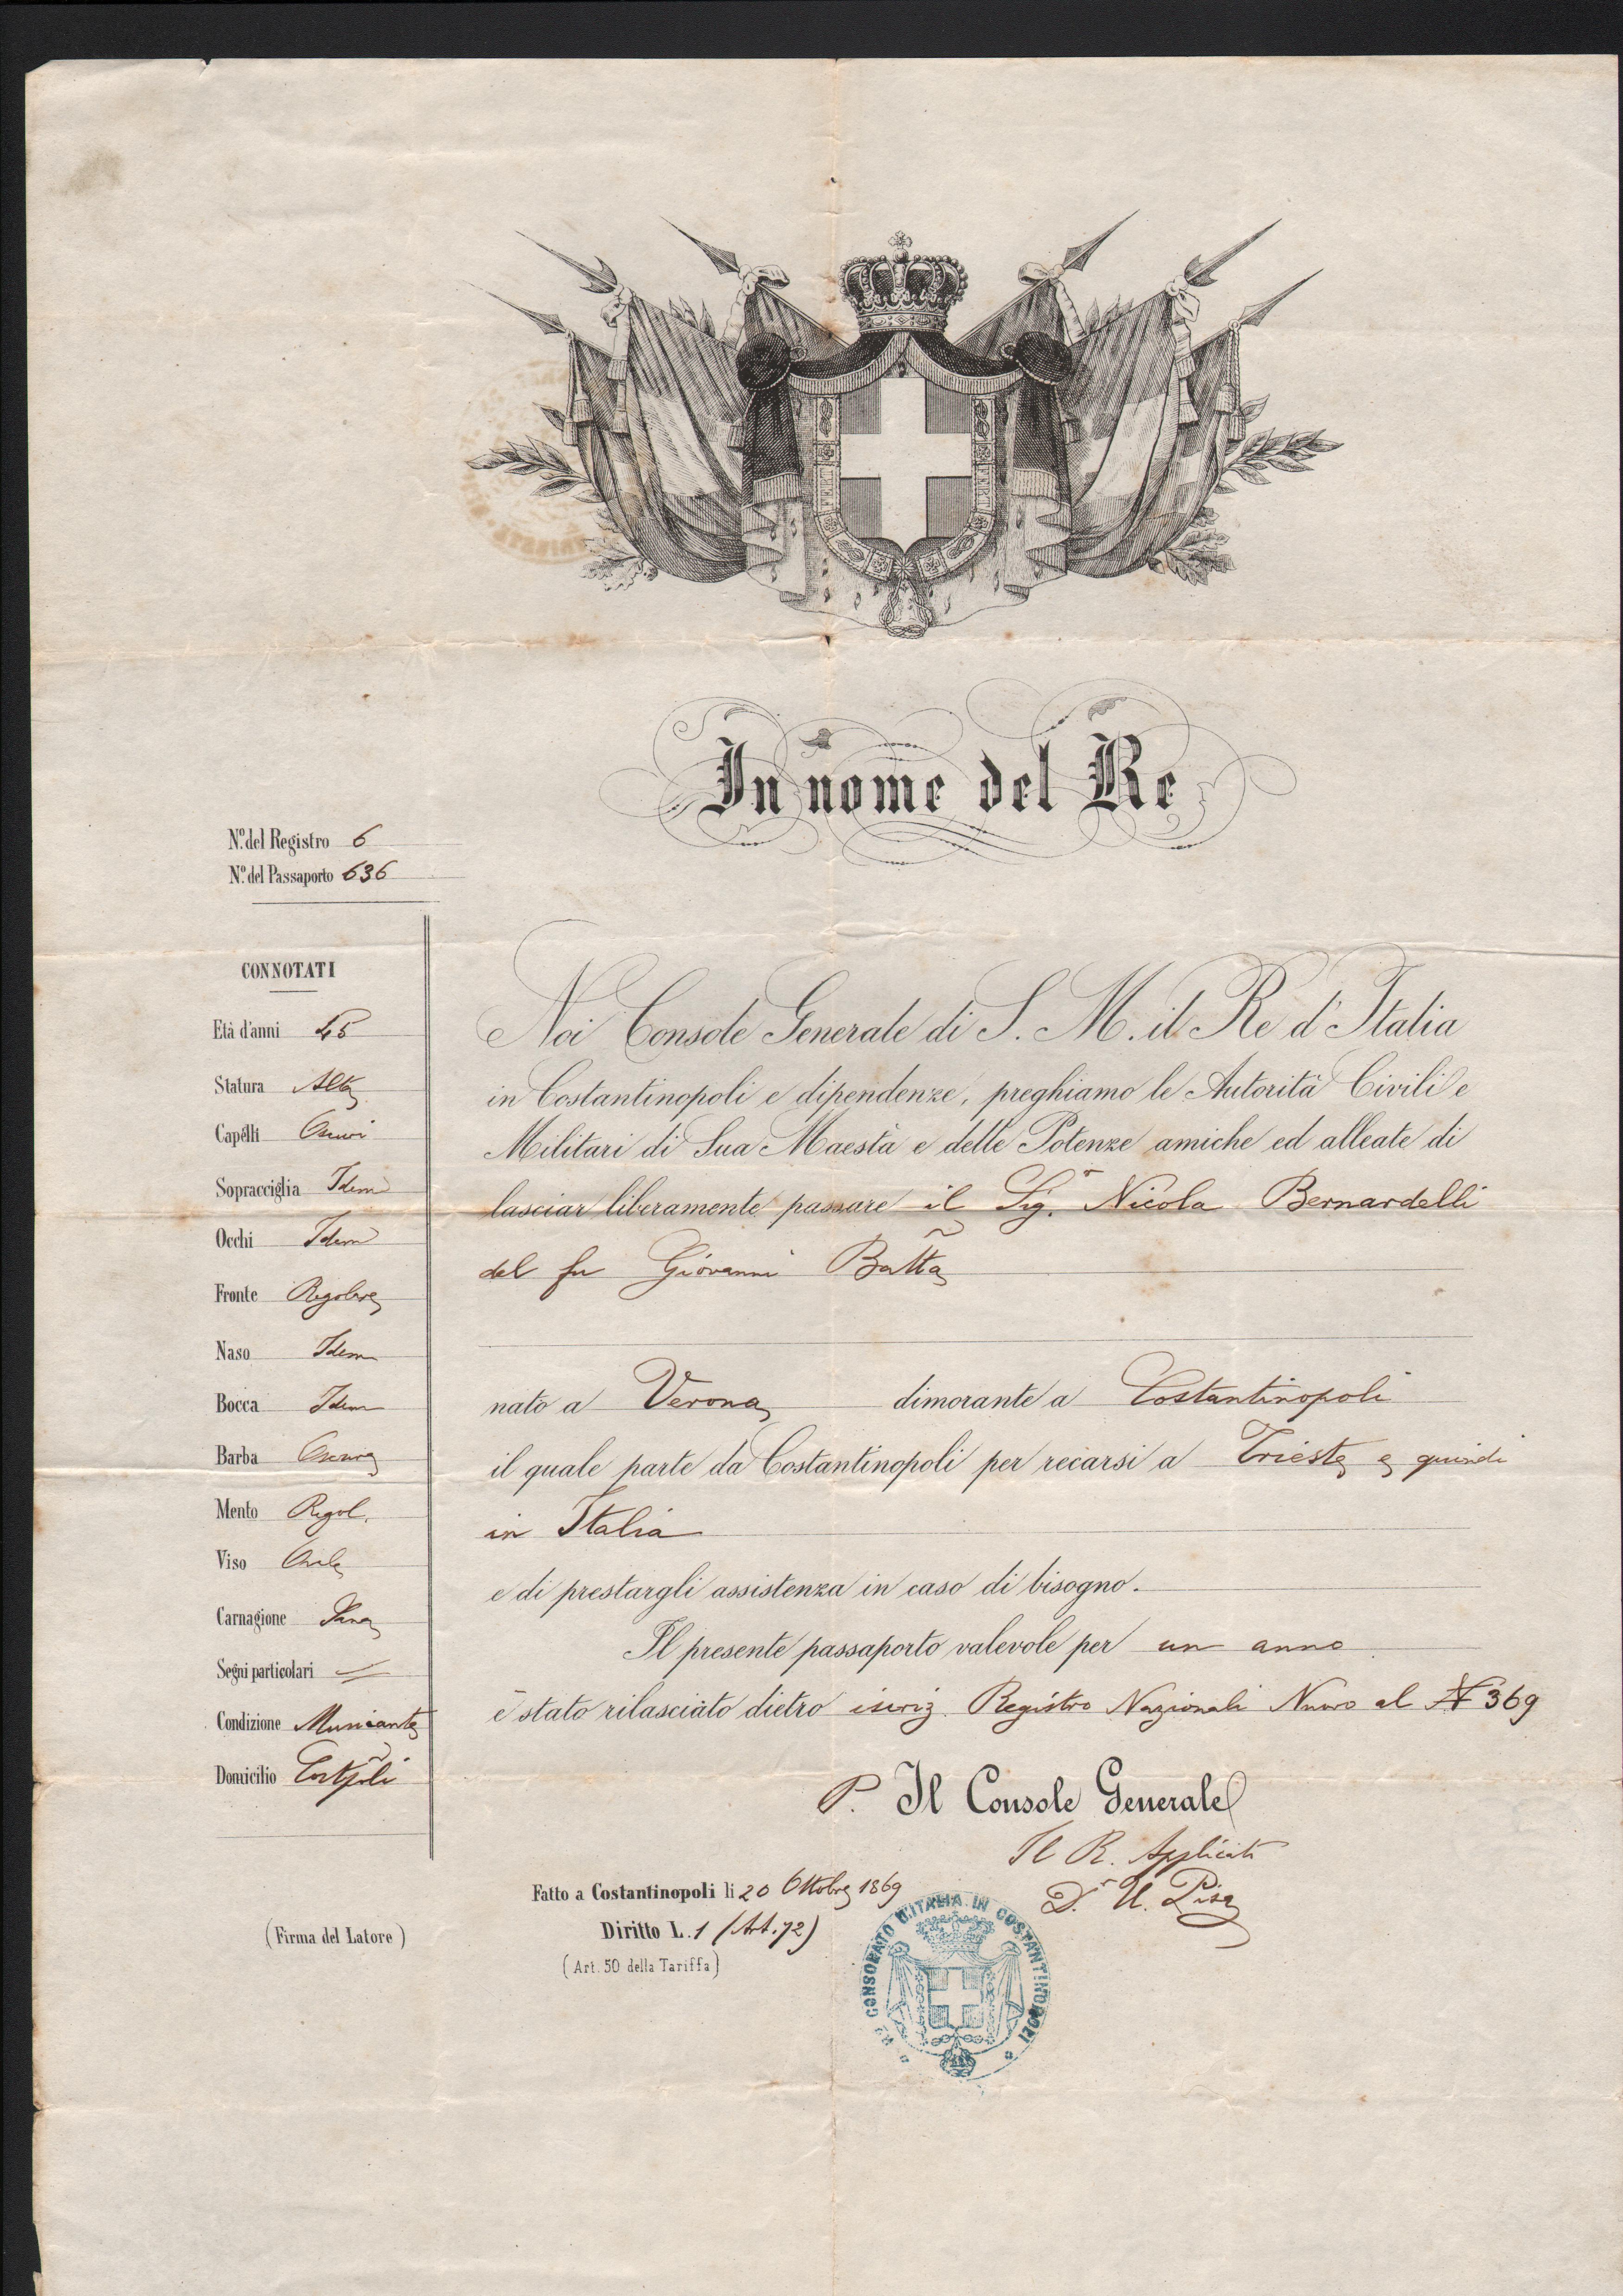 FERT
FERT
In nome del Re
N.º del Registro 6
N.º del Passaporto 636
CONNOTATI
Età d'anni 45
Statura Alta
Capélli Oscuri
Sopracciglia Idem
Occhi Idem
Fronte Regolare
Naso Idem
Bocca Idem
Barba Oscura
Mento Regol.
Viso Ovale
Carnagione Sana
Segni particolari //
Condizione Musicante
Domicilio Costpoli
Noi Console Generale di S. M. il Re d'Italia
in Costantinopoli e dipendenze, preghiamo le Autorità Civili e
Militari di Sua Maestà e delle Potenze amiche ed alleate di
lasciar liberamente passare il Sig.r Nicola Bernardelli
del fu Giovanni Batta
nato a Verona dimorante a Costantinopoli
il quale parte da Costantinopoli per recarsi a Trieste e quindi
in Italia
e di prestargli assistenza in caso di bisogno.
Il presente passaporto valevole per un anno
è stato rilasciato dietro iscriz. Registro Nazionali Nuovo al N 369
P. Il Console Generale
Il R. Applicato
D.r U. Pisa
Fatto a Costantinopoli li 20 Ottobre 1869
Diritto L. 1 (Art. 72)
(Art. 50 della Tariffa)
(Firma del Latore)
Rº CONSOLATO D'ITALIA IN COSTANTINOPOLI